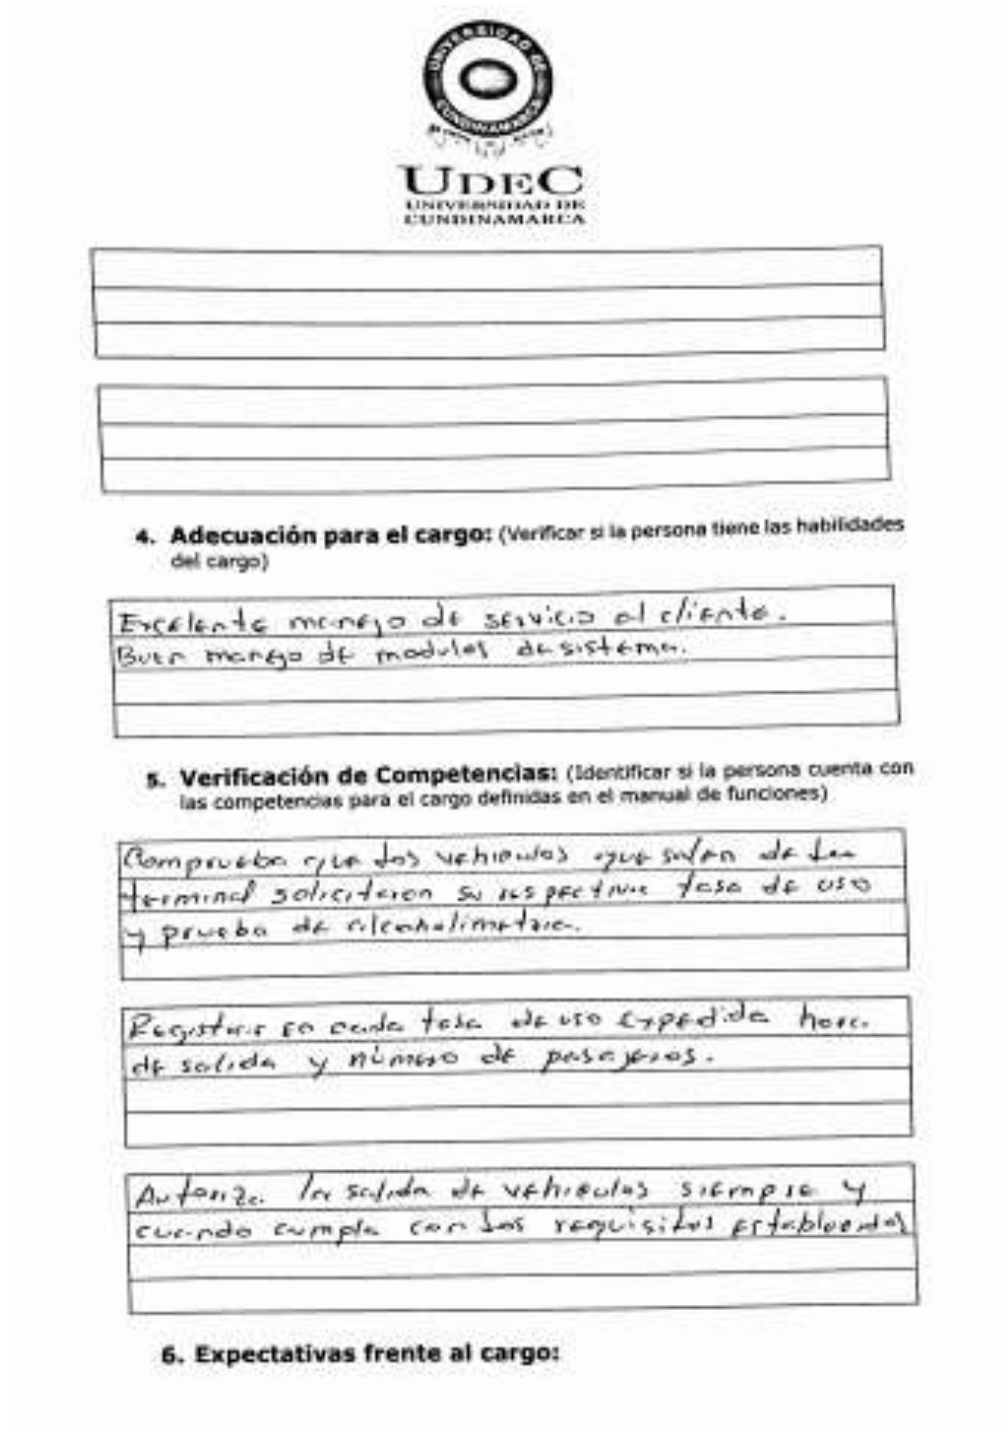 UNIVERSIDAD DE
CUNDINAMARCA
UDEC
UNIVERSIDAD DE
CUNDINAMARCA
4. Adecuación para el cargo: (Verificar si la persona tiene las habilidades
del cargo)
Excelente manejo de servicio al cliente.
Buen manejo de modulos de sistema.
5. Verificación de Competencias: (Identificar si la persona cuenta con
las competencias para el cargo definidas en el manual de funciones)
Comprueba que los vehiculos que salen de la
terminal solicitaron su respectiva tasa de uso
y prueba de alcoholimetria.
Registrar en cada tasa de uso expedida hora
de salida y número de pasajeros.
Autoriza la salida de vehiculos siempre y
cuando cumpla con los requisitos establecidos
6. Expectativas frente al cargo: